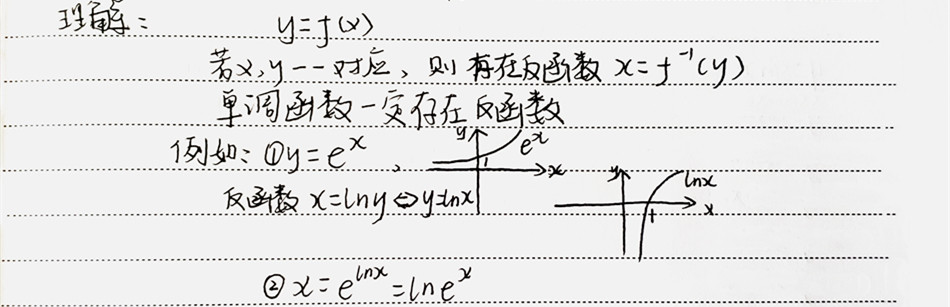 理解：
y=f(x)
若x,y一一对应，则存在反函数 x=f⁻¹(y)
单调函数一定存在反函数
例如：①y=eˣ，
y 1 eˣ x
反函数 x=lny⇔y=lnx
y lnx 1 x
②x=e^{lnx}=lneˣ